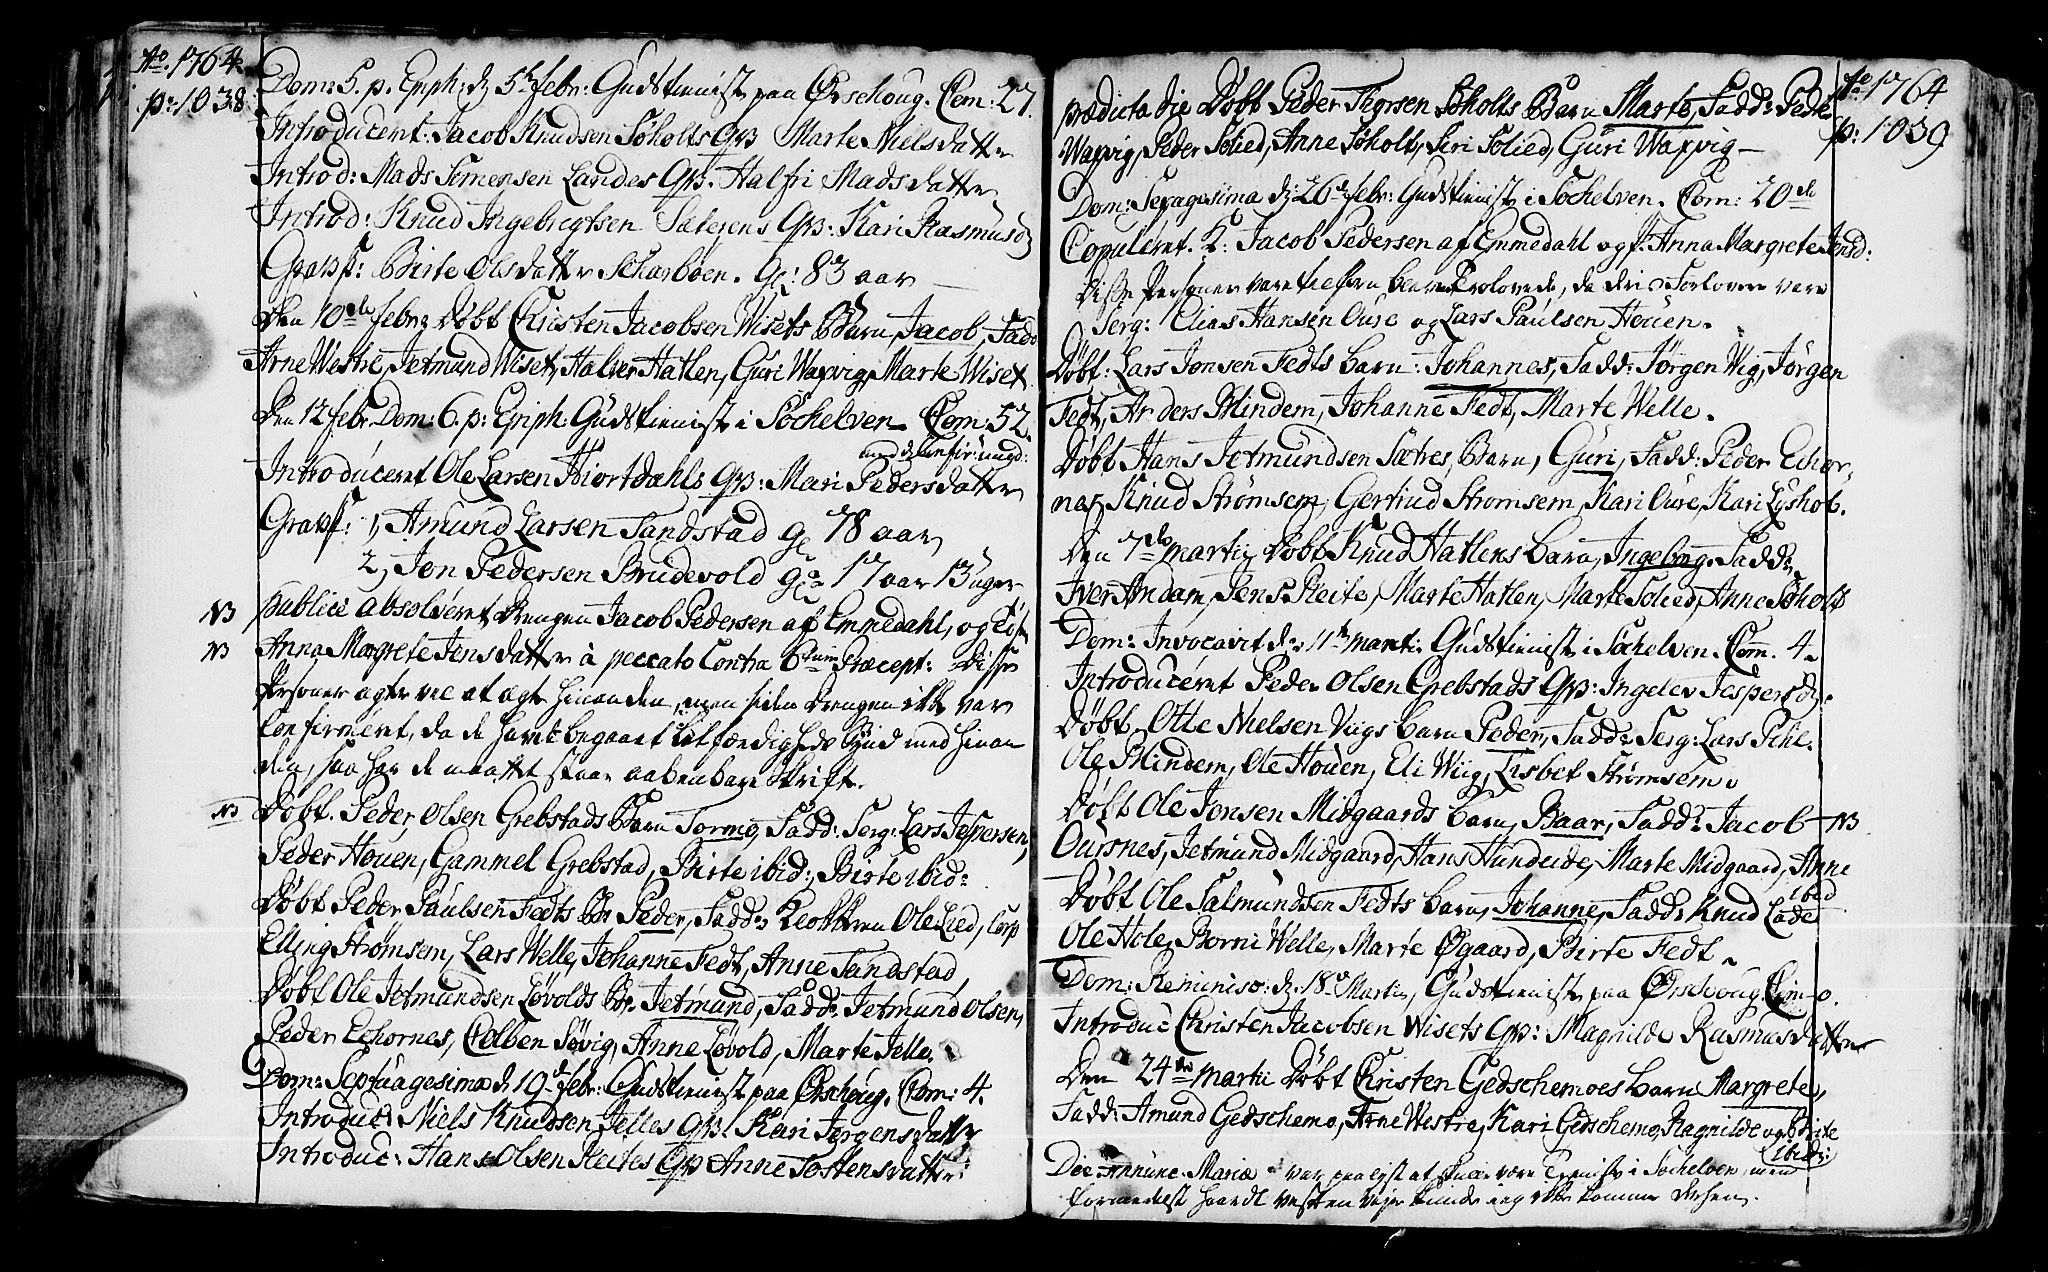 Ao. 1764
p: 1038
Dom: 5. p. Epiph: d 5te febr: Gudstienist paa Ørschoug. Com: 27.
Introduceret: Jacob Knudsen Søholts Qv: Marte Nielsdatter
Introd: Mads Simensen Landes Qv: Halfri Madsdatter
Introd: Knud Ingebrigtsen Sætrens Qv: Kari Rasmusd
Gravf: Birte Olsdatter Scharboen. Gl: 83 aar
Den 10de febr: Døbt Christen Jacobsen Wisets Barn, Jacob, Fadd:
Arne Westre, Jetmund Wiset, Halver Hatlen, Guri Wapvig, Marte Wiset
Den 12 febr. Dom: 6. p: Epiph: Gudstienist i Søchelven. Com: 52.
med de Confir: ungd:
Introduceret Ole Larsen Hiortdahls Qv: Mari Pedersdatter
Gravf: 1, Amund Larsen Sandstad gl 78 aar
2, Jon Pedersen Brudevold gl 17 aar 13 uger
NB publice absolveret Drengen Jacob Pedersen af Emmedahl, og
NB Anna Margrete Jensdatter à peccato Contra 6tum Præcept: Disse
Personer agter vel at ægte hinanden, men siden Drengen ikke var
Confirmeret, da de havde begaaet letfærdigheds Synd med hinan
den, saa har de maattet staae aabenbare Skrift.
NB Døbt. Peder Olsen Grebstads Barn Sorine, Fadd: Serg: Lars Jespersen,
Peder Houen, Gammel Grebstad, Birte ibid:, Birte ibid:
Døbt Peder Paulsen Fedts Bn Peder, Fadd: Klokkeren Ole Lied, Corp
Elling Strømsem, Lars Welle, Johanne Fedt, Anne Sandstad
Døbt Ole Jetmundsen Løvolds Bn. Jetmund, Fadd: Jetmund Olsen,
Peder Echornes, Colben Søvig, Anne Løvold, Marte Jelle.
Dom: Septuagesima d 19de febr: Gudstienist paa Ørschoug. Com: 4.
Introduc: Niels Knudsen Jelles Qv: Kari Jørgensdatter
Introduc: Hans Olsen Reites Qv Anne Tostensdatter:
Ao 1764
p: 1039
prædicto die Døbt Peder Siversen Søholts Barn Marte, Fadd: Peder
Wapvig, Peder Solied, Anne Søholt, Siri Solied, Guri Wapvig
Dom: Sexagesima d: 26de febr: Gudstienist i Søchelven. Com: 20de
Copuleret. K: Jacob Pedersen af Emmedahl og P. Anna Margrete Jensd:
Disse Personer vare trolovede, da deris Forlovere vare
Serg: Elias Hansen Oure og Lars Paulsen Houen.
Døbt: Lars Jonsen Fedts barn: Johannes, Fadd: Jørgen Wig, Jørgen
Fedt, Anders Mindem, Johanne Fedt, Marte Welle.
Døbt Hans Jetmundsen Sætres Barn, Guri, Fadd: Peder Echor,
nes, Knud Strømsem, Gertrud Strømsem, Kari Oure, Kari Lyshol.
Den 7de Martii Døbt Knud Hatlens barn, Ingeborg. Fadd:
Iver Amdam, Jens Reite, Marte Hatlen, Marte Solied, Anne Søholt
Dom: Invocavit d: 11te Marti: Gudstienist i Søchelven. Com. 4
Introduceret Peder Olsen Grebstads Qv: Ingelev Jespersd.
Døbt Otte Nielsen Viigs barn Peder, Fadd: Serg: Lars Pehl.
Ole Mindem, Ole Houen, Eli Wiig, Lisbet Strømsem.
Døbt Ole Jonsen Midgaards barn, Baar, Fadd: Jacob NB
Oursnes, Jetmund Midgaard, Hans Hundeide, Marte Midgaard, Anne
ibid
Døbt Ole Salmundsen Fedts barn, Johanne, Fadd: Knud Lade
Ole Hole, Borni Welle, Marte Øgaard, Birte Fedt
Dom: Reminisc: d 18de Martii, Gudstienist paa Ørschoug. Com-0.
Introduc Christen Jacobsen Wisets Qv: Magnilde Rasmusdatter
Den 24de Martii Døbt Christen Gedschemoes barn Margrete,
Fadd: Amund Gedschemo, Arne Westre, Kari Gedschemo, Ragnilde og Birte
ibid:
Die Annunc. Mariæ var paalyst at skulle være Tieniste i Søchelven, men
formedelst haardt Vesten veyr kunde ieg ikke komme derhen.